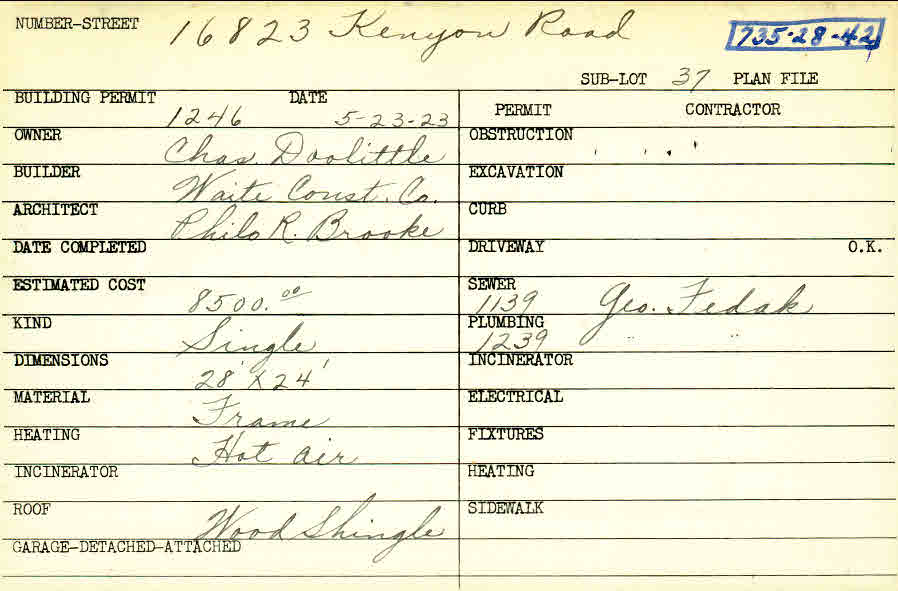 NUMBER-STREET 16823 Kenyon Road 735-28-42
SUB-LOT 37 PLAN FILE
BUILDING PERMIT DATE PERMIT CONTRACTOR
1246 5-23-23
OWNER OBSTRUCTION
Chas. Doolittle
BUILDER EXCAVATION
Waite Const. Co.
ARCHITECT CURB
Philo R. Brooke
DATE COMPLETED DRIVEWAY O.K.
ESTIMATED COST SEWER
8500.00 1139 Geo. Fedak
KIND PLUMBING
Single 1239 " "
DIMENSIONS INCINERATOR
28' X 24'
MATERIAL ELECTRICAL
Frame
HEATING FIXTURES
Hot air
INCINERATOR HEATING
ROOF SIDEWALK
Wood Shingle
GARAGE-DETACHED-ATTACHED